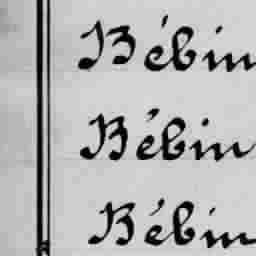 Bébin
Bébin
Bébin